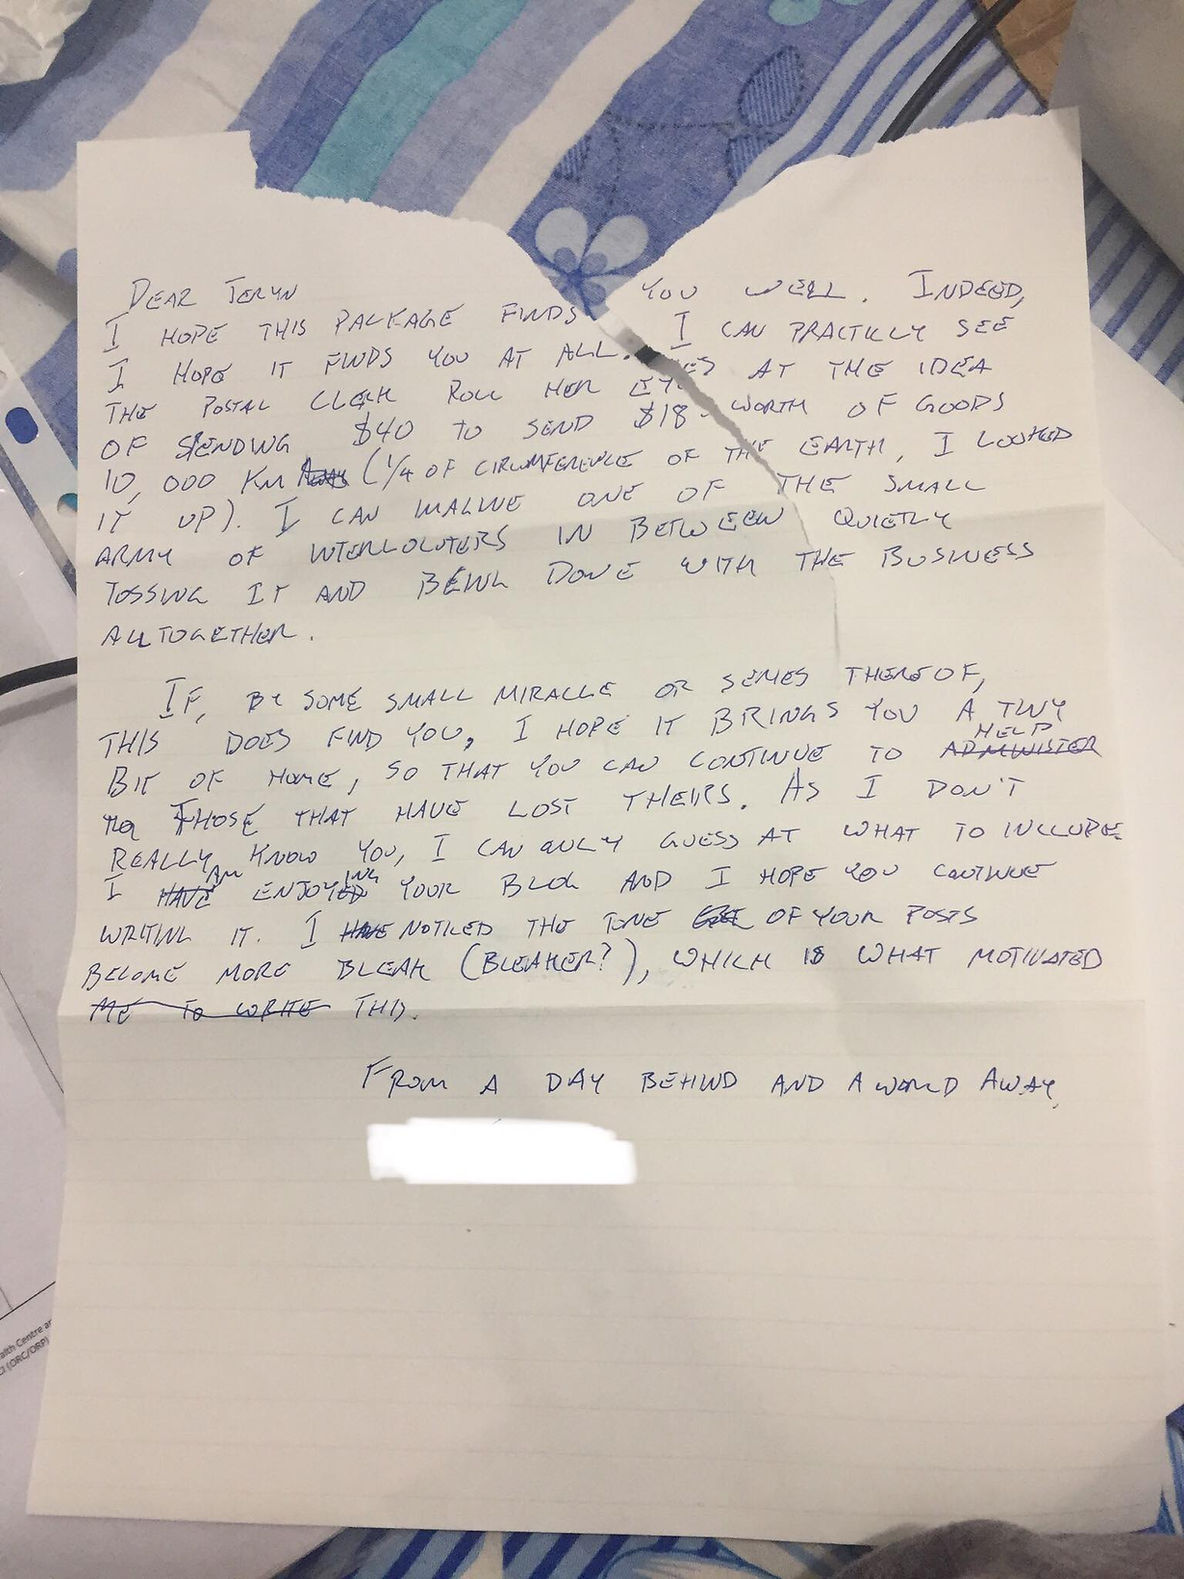 DEAR TERYN
I HOPE THIS PACKAGE FINDS YOU WELL. INDEED,
I HOPE IT FINDS YOU AT ALL. I CAN PRACTICLLY SEE
THE POSTAL CLERK ROLL HER EYES AT THE IDEA
OF SPENDING $40 TO SEND $18- WORTH OF GOODS
10,000 KM (1/4 OF CIRCUMFERENCE OF THE EARTH, I LOOKED
IT UP). I CAN IMAGINE ONE OF THE SMALL
ARMY OF INTERLOCUTERS IN BETWEEN QUIETLY
TOSSING IT AND BEING DONE WITH THE BUSINESS
ALLTOGETHER.
IF, BY SOME SMALL MIRACLE OR SERIES THEREOF,
THIS DOES FIND YOU, I HOPE IT BRINGS YOU A TINY
BIT OF HOME, SO THAT YOU CAN CONTINUE TO ADMINISTER HELP
THOSE THAT HAVE LOST THEIRS. AS I DON'T
REALLY KNOW YOU, I CAN ONLY GUESS AT WHAT TO INCLUDE.
I HAVE AM ENJOYED ING YOUR BLOG AND I HOPE YOU CONTINUE
WRITING IT. I HAVE NOTICED THE TONE OF YOUR POSTS
BECOME MORE BLEAK (BLEAKER?), WHICH IS WHAT MOTIVATED
ME TO WRITE THIS.
FROM A DAY BEHIND AND A WORLD AWAY,
alth Centre a
CI (ORC/ORP)